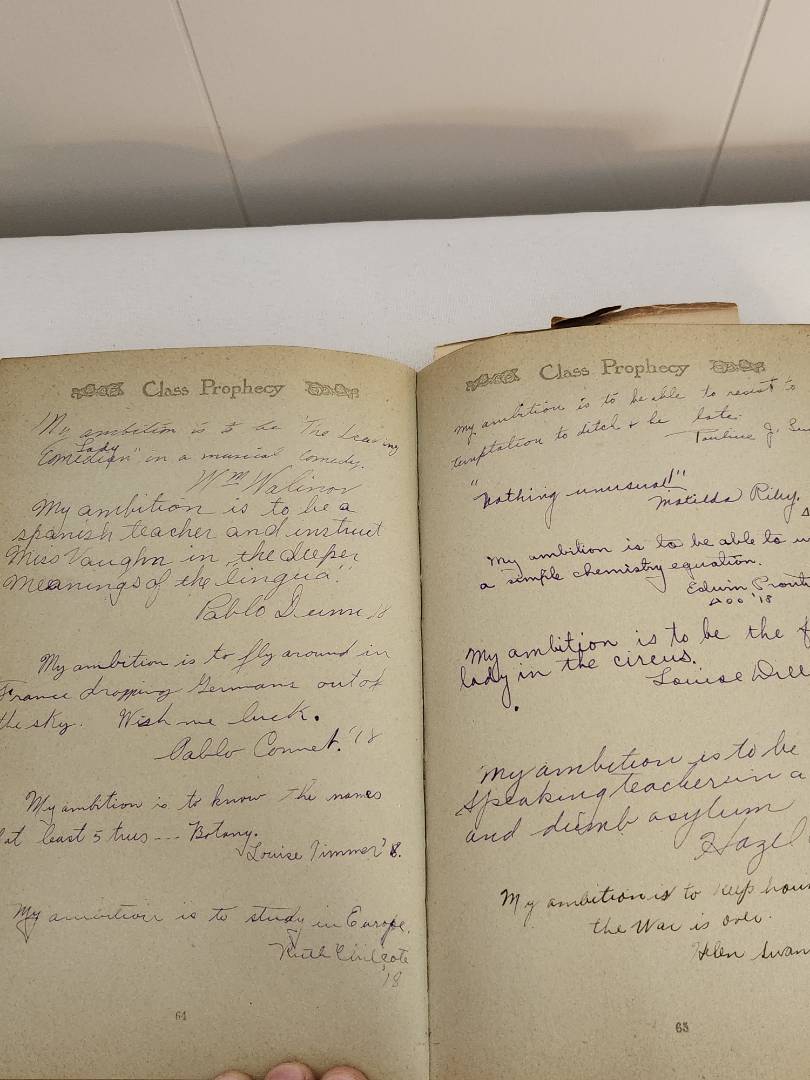 Class Prophecy
My ambition is to be "The Leading
Lady
Comedian" in a musical comedy.
Wm Walinov
My ambition is to be a
spanish teacher and instruct
Miss Vaughn in "the deeper
meanings of the "lingua."
Pablo 18
My ambition is to fly around in
France dropping Germans out of
the sky. Wish me luck.
Pablo Connet. '18
My ambition is to know the names
of at least 5 trees --- Botany.
Louise Timmer '18.
My ambition is to study in Europe.
Ruth Chilcote
'18
64
Class Prophecy
My ambition is to be able to resist to
temptation to ditch & be late.
Pauline J.
"Nothing unusual!"
Matilda Riley.
My ambition is to be able to
a simple chemistry equation.
Edwin Prouty
'18
My ambition is to be the
lady in the circus.
Louise
My ambition is to be
speaking teacher in a
and dumb asylum
Hazel
My ambition is to keep
the War is over.
Helen Swan
65